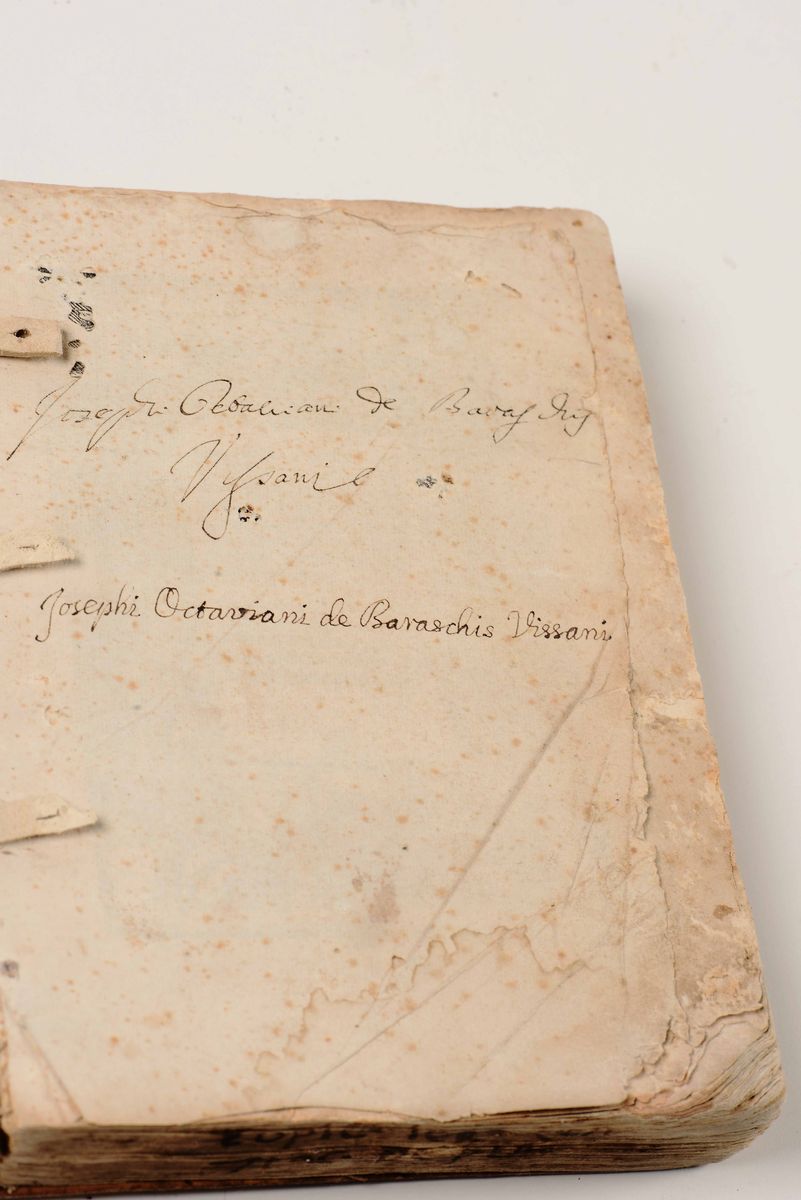 Josephi Octaviani de Baraschis
Vissani
Josephi Octaviani de Baraschis Vissani